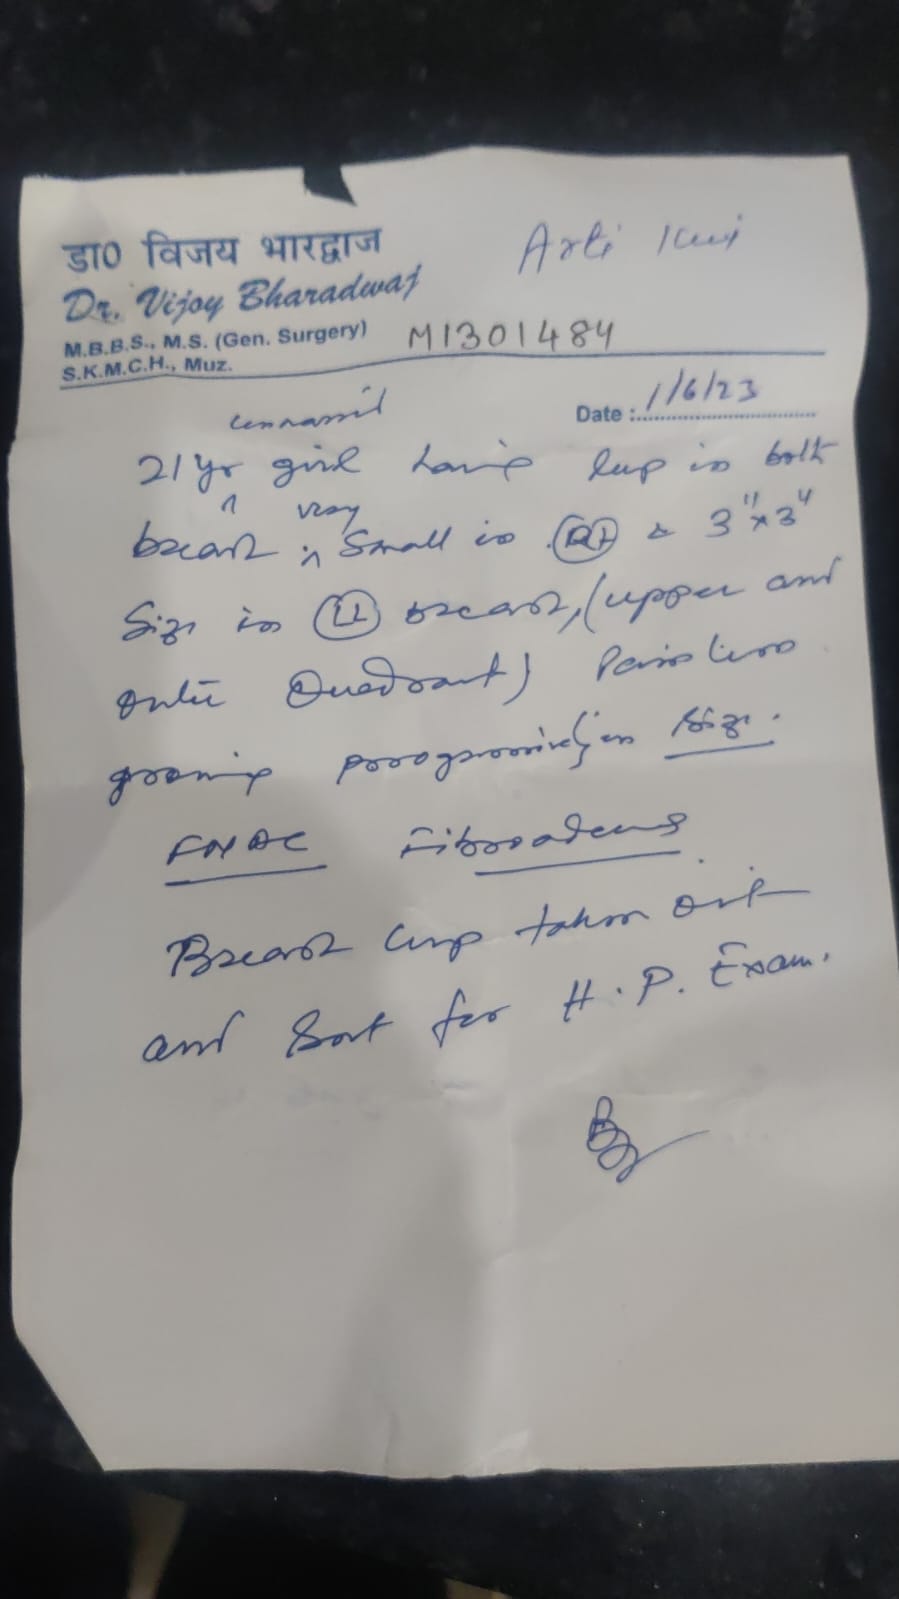 डा० विजय भारद्वाज
Arti Kuri
Dr. Vijoy Bharadwaj
M.B.B.S., M.S. (Gen. Surgery)
M1301484
S.K.M.C.H., Muz.
Date : 1/6/23
unmarried
21 yr girl having lump in both
breast, very small in Rt & 3"x3"
Size in Lt breast, (upper and
outer Quadrant) Painless
growing progressively in Size.
FNAC Fibroadenoma
Breast lump taken out
and Sent for H.P. Exam.